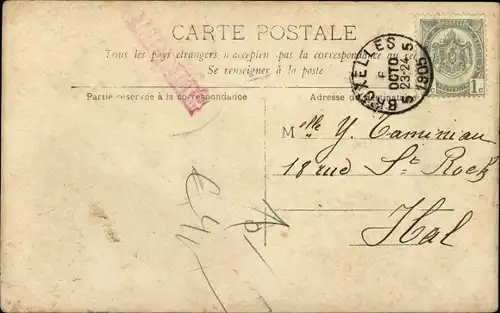 CARTE POSTALE
Tous les pays étrangers n'acceptent pas la correspondance au
Se renseigner à la poste
Partie réservée à la correspondance
Adresse
BRUXELLES 5
6
OCTO
23-24
1905
1c
Mlle Y. Taminiau
18 rue St Rock
Hal